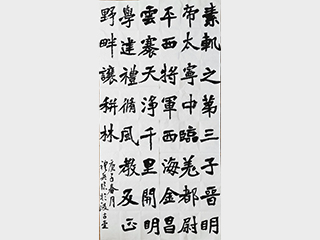 素軌之第三子晉明
帝太寧中臨羌都尉
平西將軍西海金昌
雲褰天淨千里開明
學建禮脩風教反正
野畔讓耕林
庚子春月